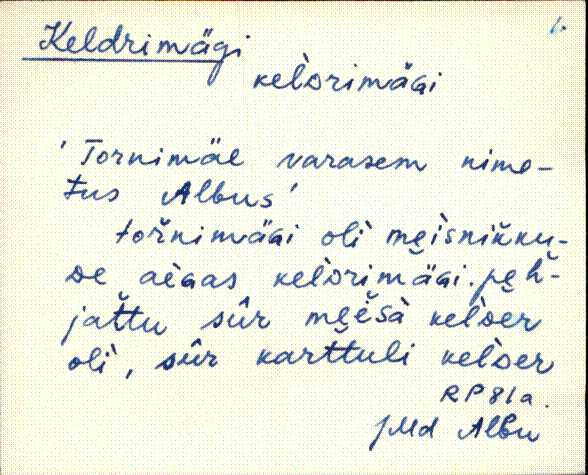 Keldrimägi
kelDrimäGi
'Tornimäe varasem nime-
tus Albus'
tornimäGi olì mèisnikku-
De aeGas kelDrimäGi. peh-
jattu sûr meèsà kelDer
olì, sûr karttuli kelDer
RP 81a.
JMd Albu